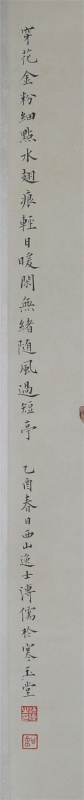 穿花金粉細點水翅痕輕日暖閑無緒隨風過短亭
乙酉春日西山逸士溥儒於寒玉堂